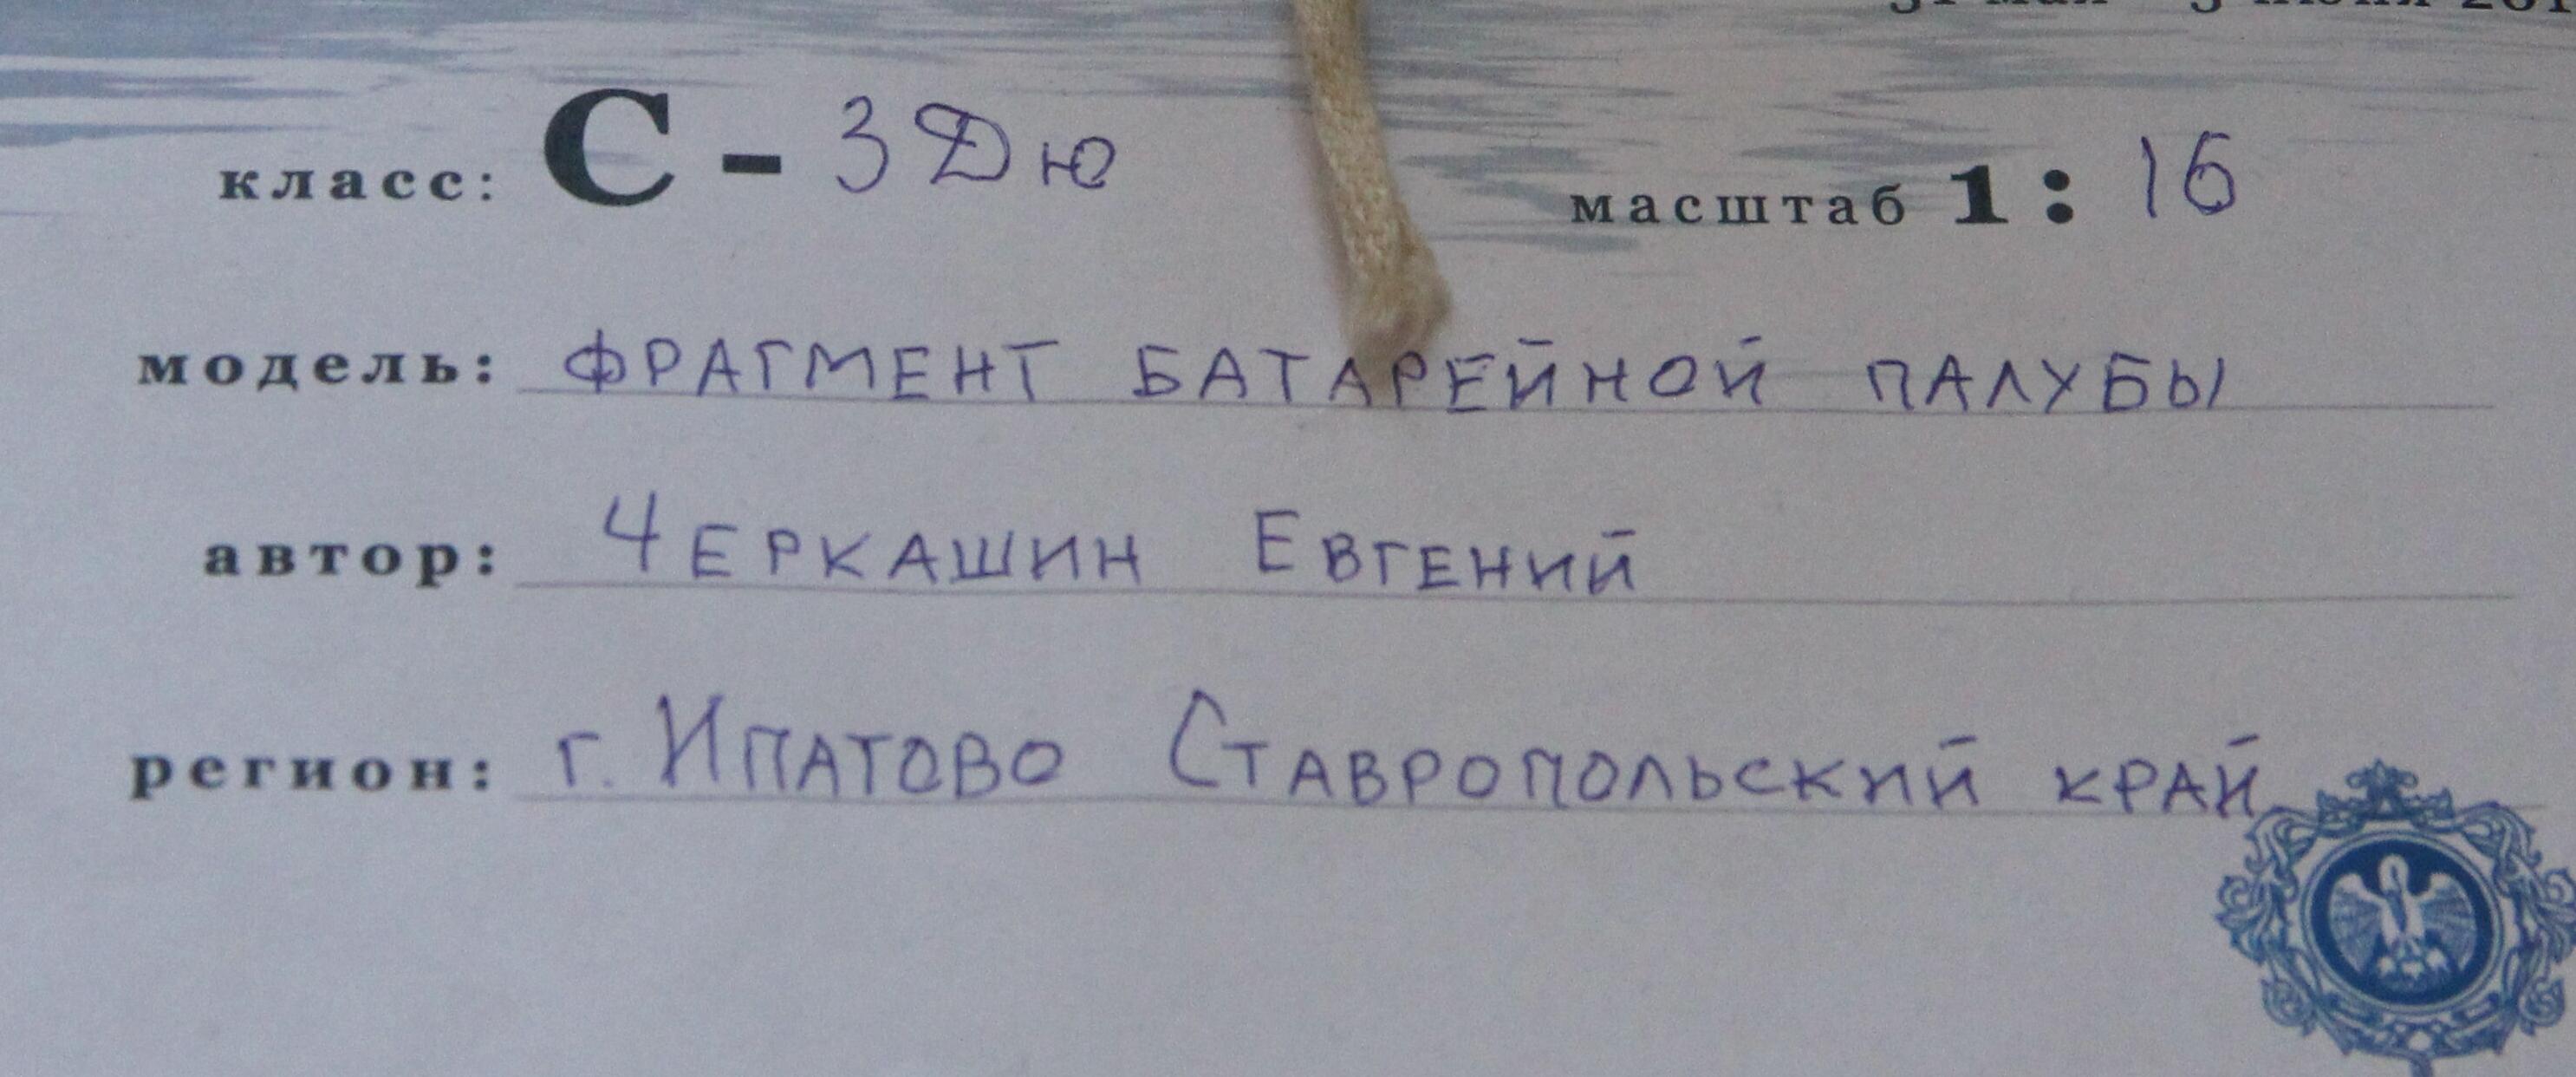 класс: С - 3 Дю масштаб 1: 16
модель: ФРАГМЕНТ БАТАРЕЙНОЙ ПАЛУБЫ
автор: ЧЕРКАШИН ЕВГЕНИЙ
регион: г. ИПАТОВО СТАВРОПОЛЬСКИЙ КРАЙ